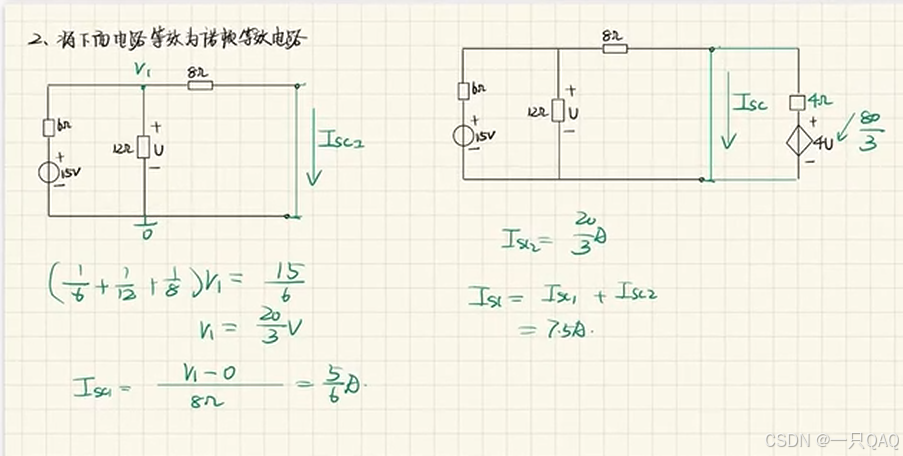 2、将下面电路等效为诺顿等效电路
V₁
8Ω
6Ω
+
15V
−
12Ω
+
U
−
Isc₂
0
(1/6 + 1/12 + 1/8)V₁ = 15/6
V₁ = 20/3 V
Isc₁ = (V₁−0)/8Ω = 5/6 A.
8Ω
6Ω
+
15V
−
12Ω
+
U
−
Isc
4Ω
+
4U
−
80/3
Isc₂ = 20/3 A
Isc = Isc₁ + Isc₂
= 7.5A.
CSDN @一只QAQ